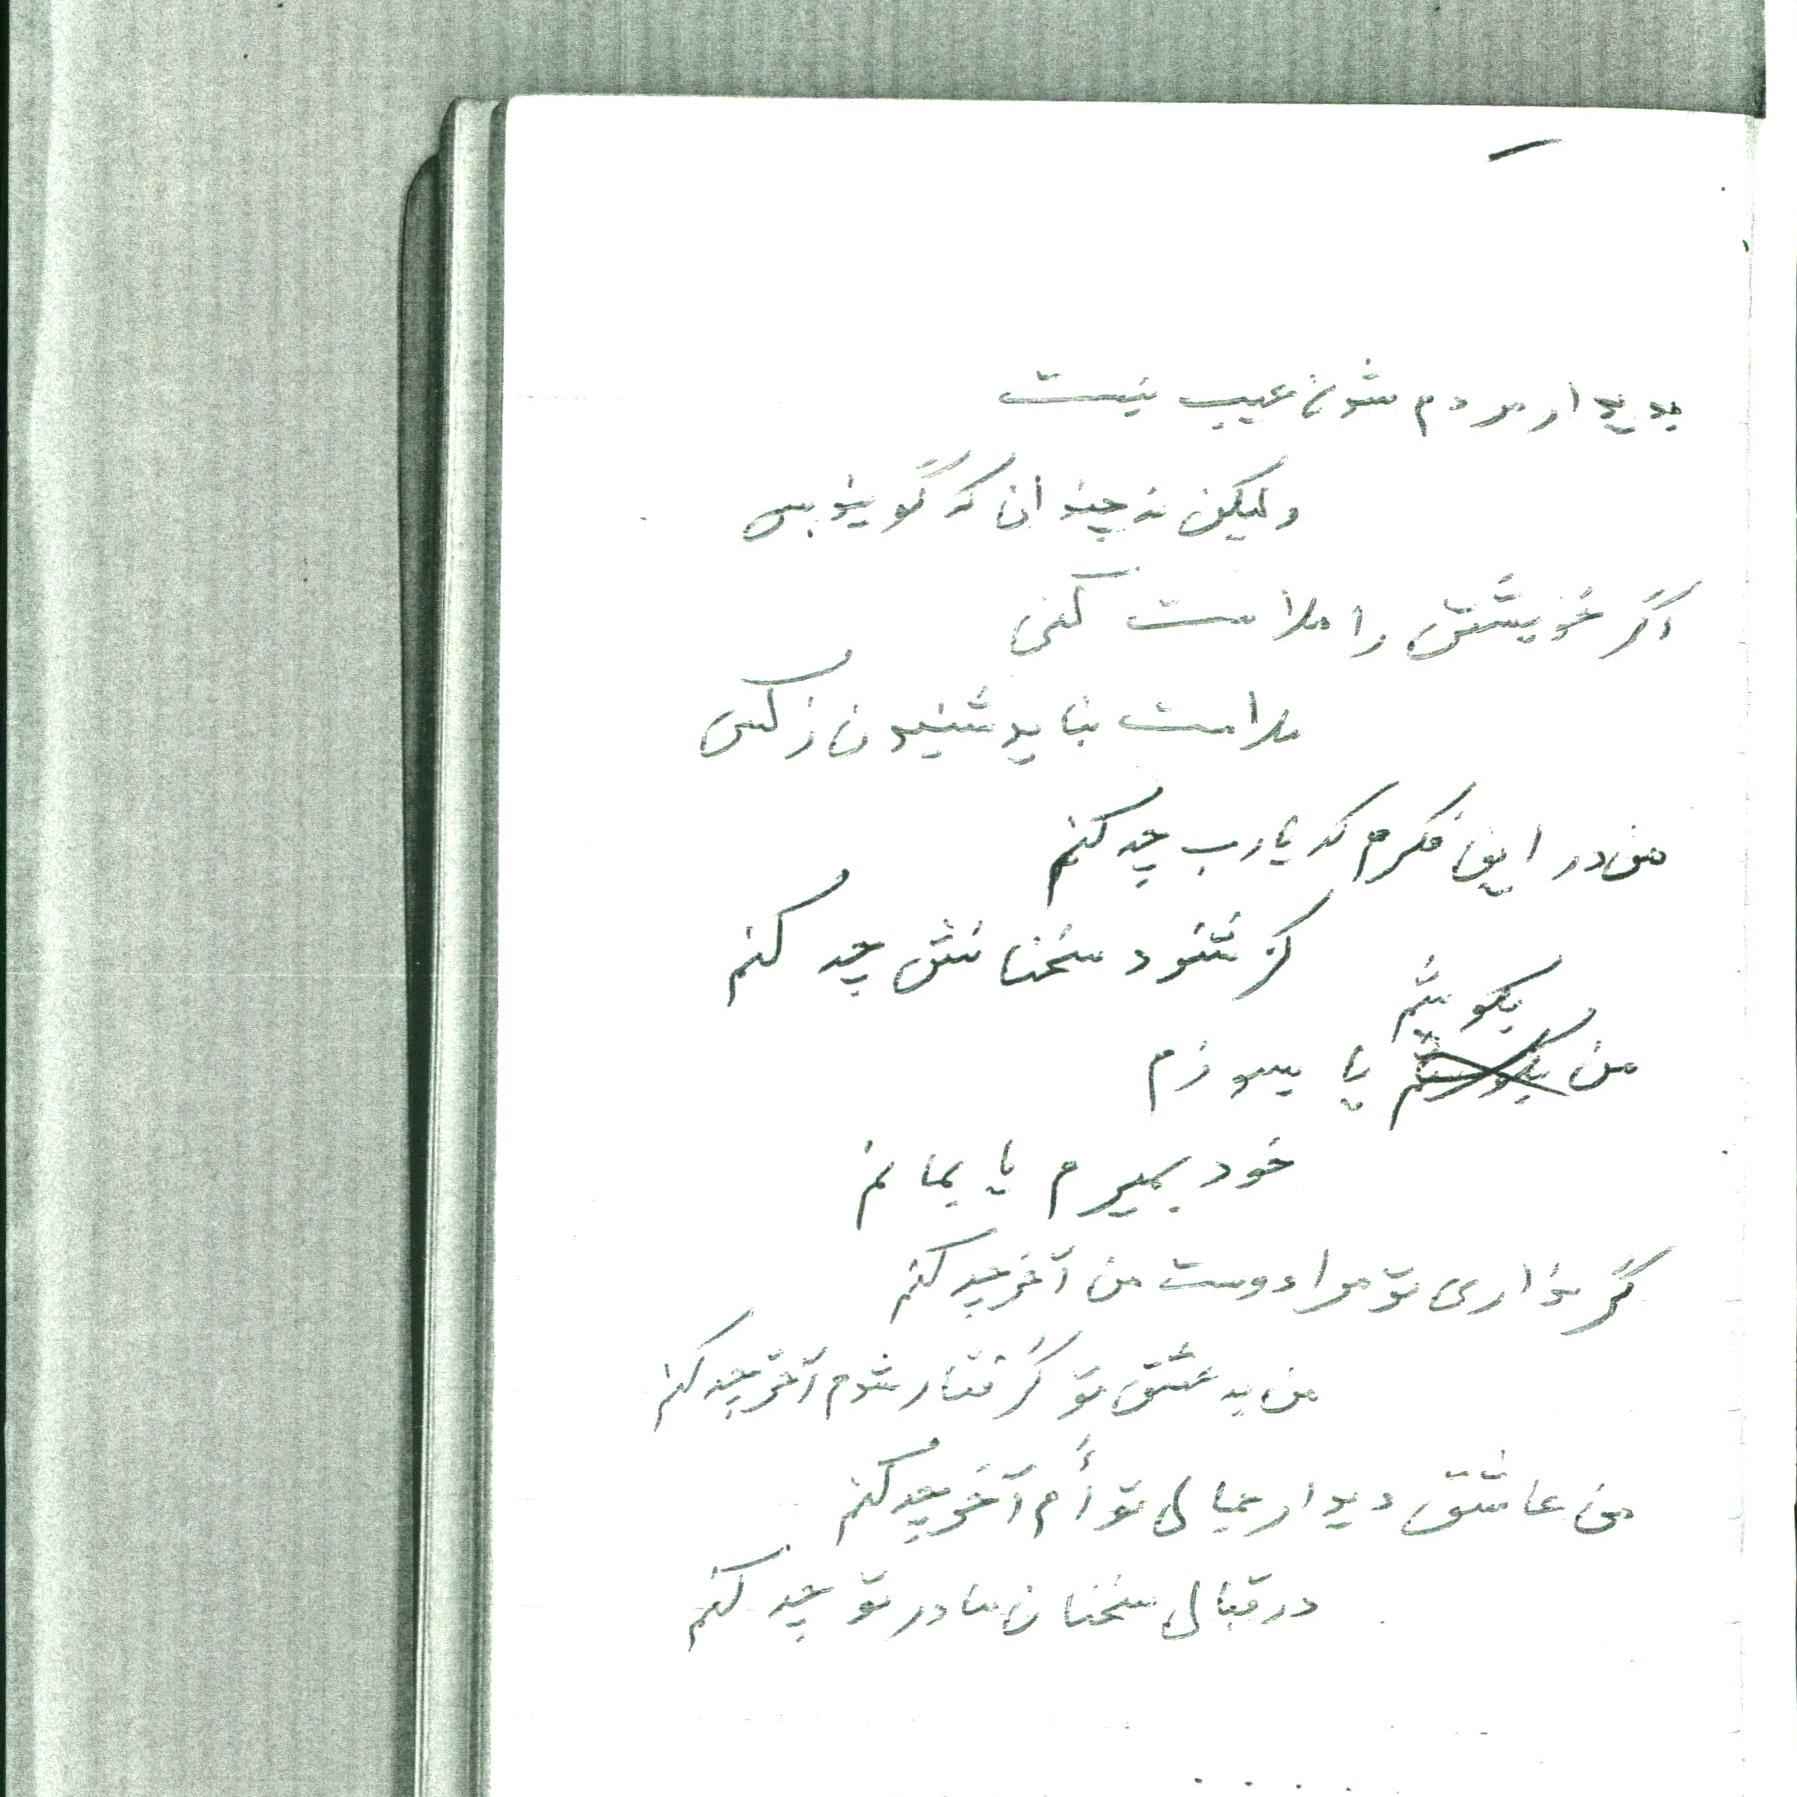 بدیدار مردم شدن عیب نیست
ولیکن نه چندان که گویند بس
اگر خویشتن را ملامت کنی
ملامت نباید شنیدن ز کس
من در این فکرم که یارب چه کنم
گر شنود سخنانش چه کنم
بکوشم
من بکوشم یا بسوزم
خود بمیرم یا بمانم
گر نداری تو مرا دوست من آخر چه کنم
من به عشق تو گرفتار شدم آخر چه کنم
من عاشق دیدار جمال تو أم آخر چه کنم
در قبال سخنان مادر تو چه کنم